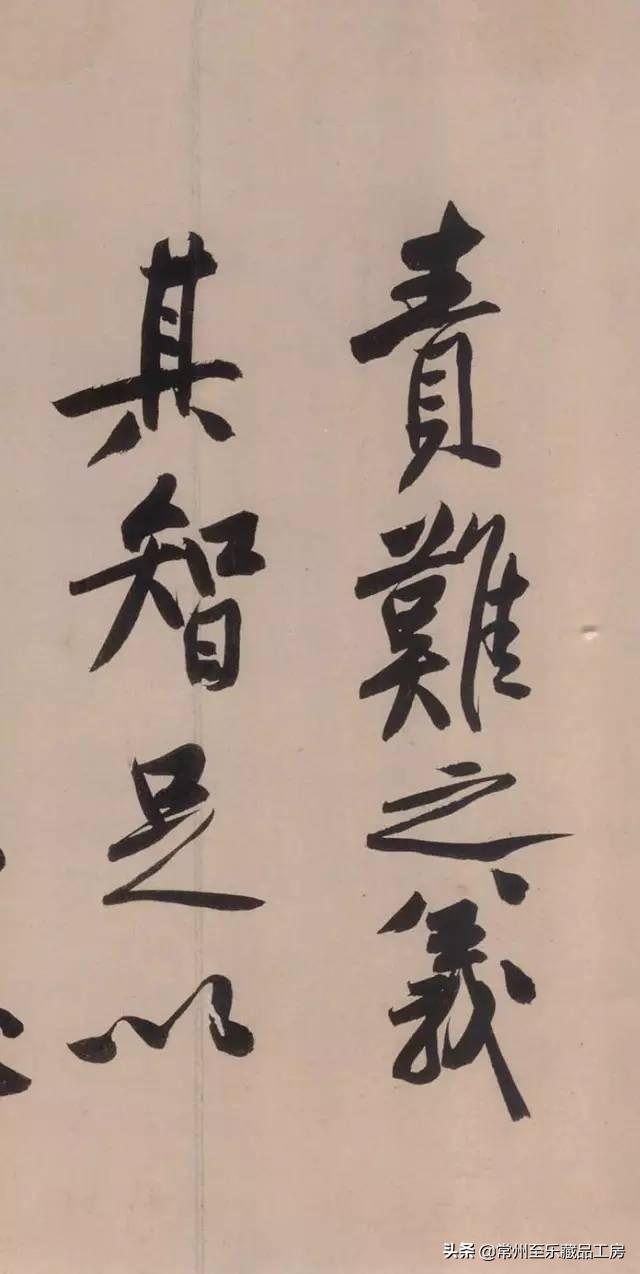 責難之義
其智足以
头条 @常州至乐藏品工房